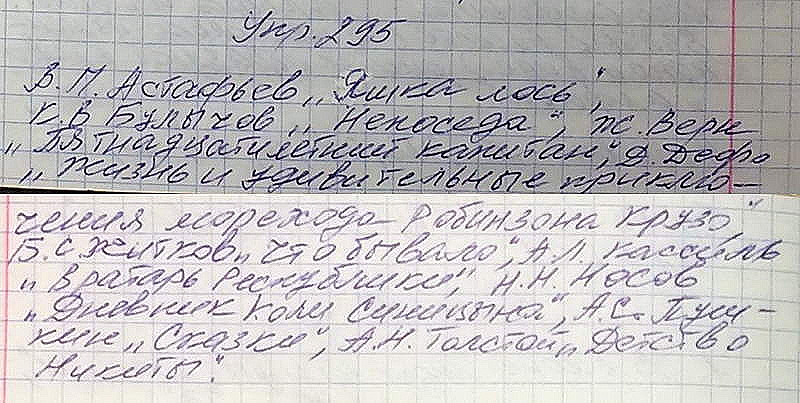 Упр. 295
В. П. Астафьев „Яшка лось",
К. В Булычов „Непоседа", Ж. Верн
„Пятнадцатилетний капитан", Д. Дефо
„Жизнь и удивительные приклю-
чения морехода Робинзона Крузо",
Б. С. Житков „Что бывало", А. Л. Кассиль
„Вратарь Республики", Н. Н. Носов
„Дневник Коли Синицына", А. С. Пуш-
кин „Сказки", А. Н. Толстой „Детство
Никиты".